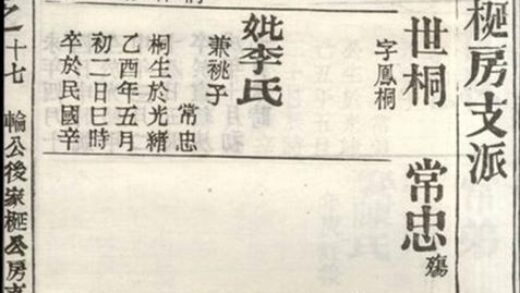 梴房支派
世桐
字鳳桐
常忠
殤
妣李氏
兼祧子
常忠
桐生於光緒
乙酉年五月
初二日巳時
卒於民國辛
之十七 輪公後家梴公房支